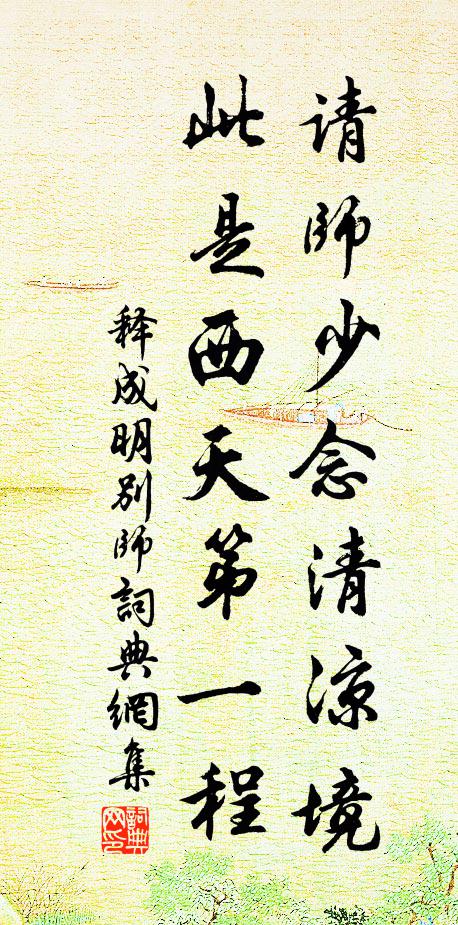 请師少念清涼境
此是西天第一程
释成明别師詞典網集
詞典
网印